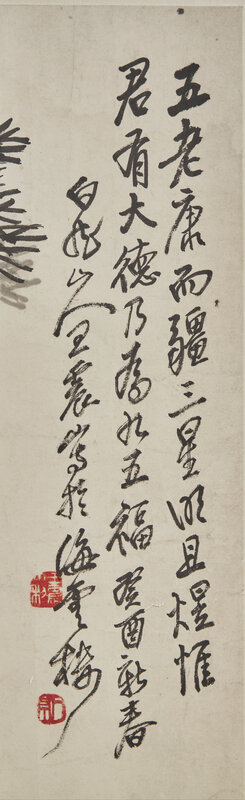 五老康而疆三星明且煌惟
君有大德乃九五福癸酉新春
白龍山人王震寫於海雲樓